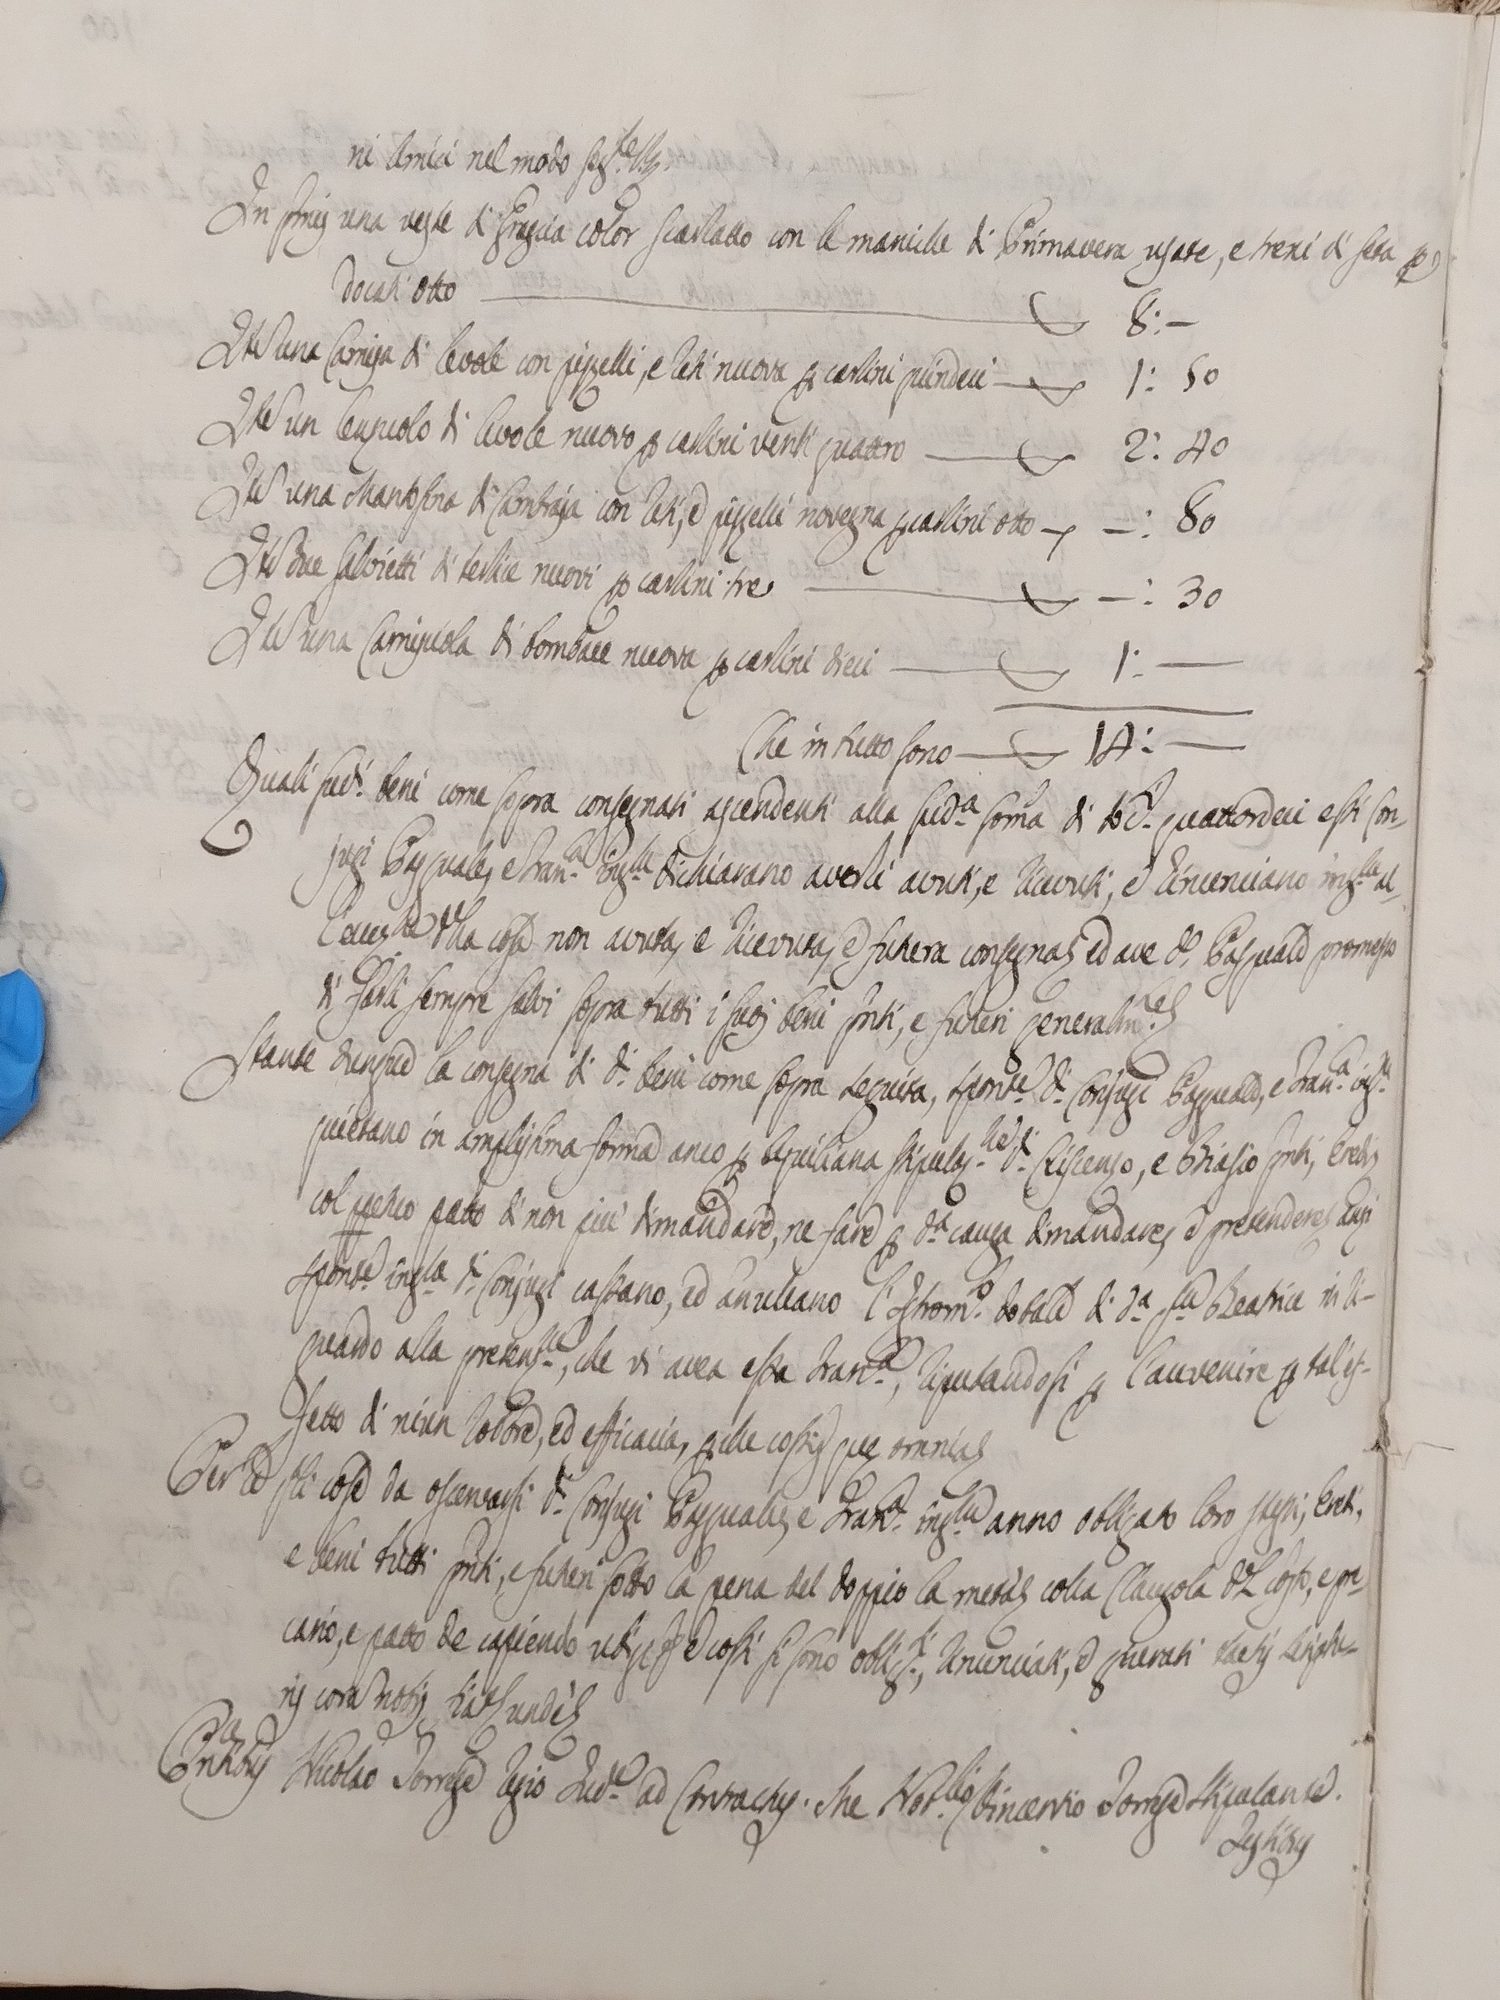 ni Amici nel modo seg.te V3.
In p̃mis una veste di Grascia color scarlatto con le maniche di Primavera usate, e treni di seta p
docati otto 8:—
Itē una Camisa di levole con pizzelli, e reti nuova p carlini quindeci 1: 50
Itē un lenzuolo di levole nuovo p carlini venti quattro 2: 40
Itē una Mantesina di Cambraja con reti, e pizzelli novegna p carlini otto —: 80
Itē due salvietti di terlice nuovi p carlini tre —: 30
Itē una Camisciola di bombace nuova p carlini dieci 1:—
Che in tutto sono 14:—
Quali sud.i beni come sopra consegnati ascendenti alla sud.a som̃a di doc.i quattordeci essi Con-
jugi Pasquale, e Fran.ca ins.lm dichiarano averli avuti, e ricevuti, e rinunciano ins.lm al-
l'eccez.ne della cosa non avuta, e ricevuta, e futura consegna, ed ave d.o Pasquale promesso
di farli sempre salvi sopra tutti i suoi beni p̃nti, e futuri generalm.te
Stante dunque la consegna di d.i beni come sopra seguita, spont.e d.i Conjugi Pasquale, e Fran.ca ins.lm
quietano in amplissima forma anco p Aquiliana stipulaz.ne d.i Criscenzo, e Biasio p̃nti, eredi
col patto di non più dimandare, ne fare p d.a causa dimandare, e pretendere, anzi
spont.e ins.lm d.i Conjugi cassano, ed annullano l'Istrom.o dotale di d.a q.m Beatrice in ri-
guardo alla pretenz.ne, che vi avea essa Fran.ca, riputandosi p l'avvenire p tal ef-
fetto di niun valore, ed efficacia, p che così que omnia
Per le q̃li cose da osservarsi d.i Conjugi Pasquale, e Fran.ca ins.lm anno obligato loro stessi, eredi,
e beni tutti p̃nti, e futuri sotto la pena del doppio la metà colla Clausola del Cost.o, e pre-
cario, e patto de capiendo ubique e così si sono oblig.ti, rinunciati, e giurati tactis scriptu-
ris corā nobis Unde
P̃ntibus Nicolao Torrese regio Jud.e ad Contractus. Me Not.rio Vincentio Torrese stipulante.
Testibus